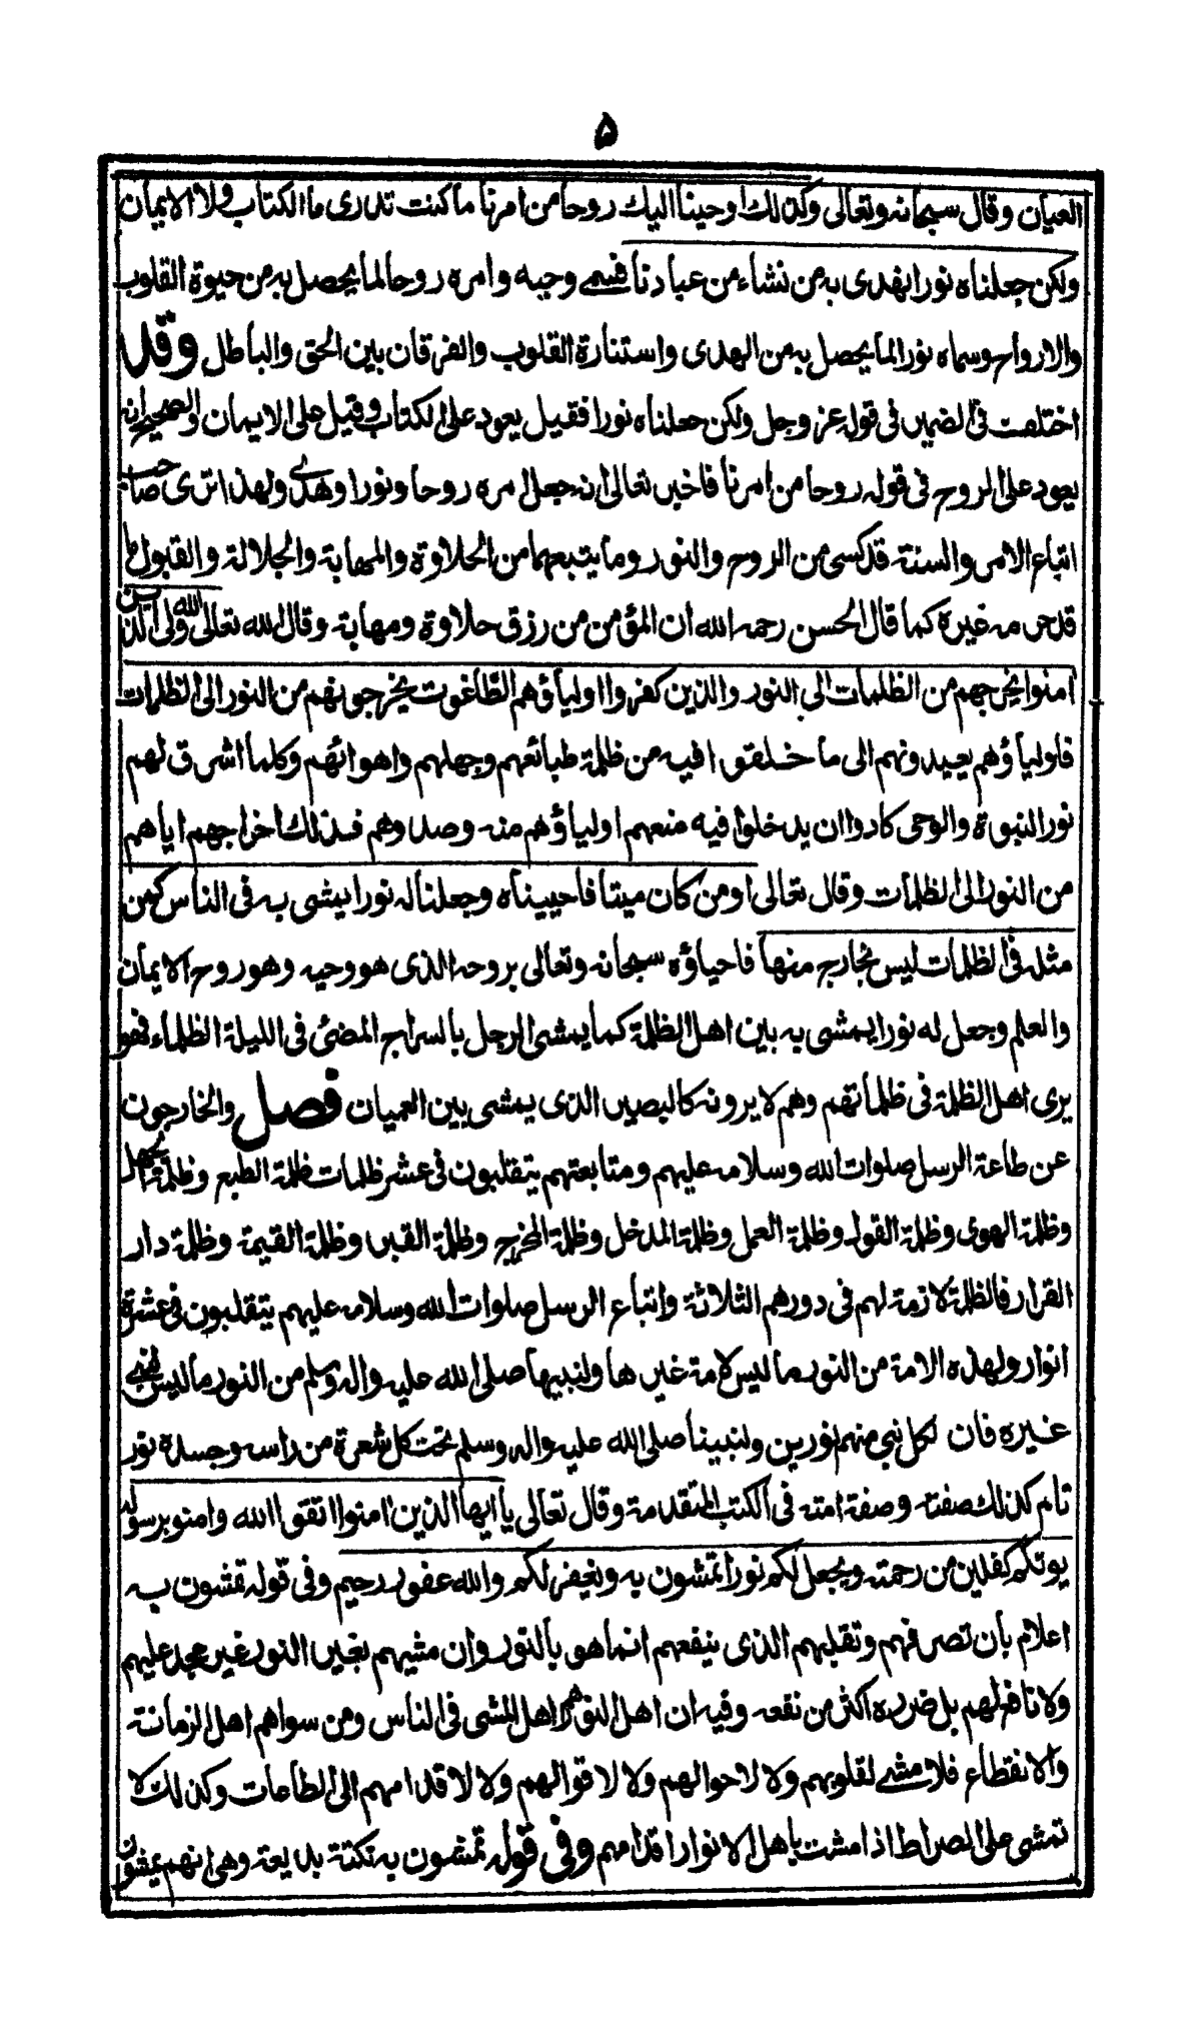 ۵
العيان وقال سبحانه وتعالى وكذلك اوحينا اليك روحا من امرنا ما كنت تدرى ما الكتاب ولا الايمان
ولكن جعلناه نورا نهدى به من نشاء من عبادنا فسمى وحيه وامره روحا لما يحصل به من حيوة القلوب
والارواح وسماه نورا لما يحصل به من الهدى واستنارة القلوب والفرقان بين الحق والباطل وقد
اختلف فى الضمير فى قوله عز وجل ولكن جعلناه نورا فقيل يعود على الكتاب وقيل على الايمان والصحيح انه
يعود على الروح فى قوله روحا من امرنا فاخبر تعالى انه جعل امره روحا ونورا وهدى ولهذا ترى صاحب
اتباع الامر والسنة قد كسى من الروح والنور وما يتبعهما من الحلاوة والمهابة والجلالة والقبول ما
قد حرمه غيره كما قال الحسن رحمه الله ان المؤمن من رزق حلاوة ومهابة وقال الله تعالى الله ولى الذين
امنوا يخرجهم من الظلمات الى النور والذين كفروا اولياؤهم الطاغوت يخرجونهم من النور الى الظلمات
فاولياؤهم يعيدونهم الى ما خلقوا فيه من ظلمة طبائعهم وجهلهم واهوائهم وكلما اشرق لهم
نور النبوة والوحى كادوا ان يدخلوا فيه منعهم اولياؤهم منه وصدوهم فذلك اخراجهم اياهم
من النور الى الظلمات وقال تعالى او من كان ميتا فاحييناه وجعلنا له نورا يمشى به فى الناس كمن
مثله فى الظلمات ليس بخارج منها فاحياؤه سبحانه وتعالى بروحه الذى هو وحيه وهو روح الايمان
والعلم وجعل له نورا يمشى به بين اهل الظلمة كما يمشى الرجل بالسراج المضئ فى الليلة الظلماء فهو
يرى اهل الظلمة فى ظلماتهم وهم لا يرونه كالبصير الذى يمشى بين العميان فصل والخارجون
عن طاعة الرسل صلوات الله وسلامه عليهم ومتابعتهم يتقلبون فى عشر ظلمات ظلمة الطبع وظلمة الجهل
وظلمة الهوى وظلمة القول وظلمة العمل وظلمة المدخل وظلمة المخرج وظلمة القبر وظلمة القيمة وظلمة دار
القرار فالظلمة لازمة لهم فى دورهم الثلاثة واتباع الرسل صلوات الله وسلامه عليهم يتقلبون فى عشرة
انوار ولهذه الامة من النور ما ليس لامة غيرها ولنبيها صلى الله عليه واله وسلم من النور ما ليس لنبى
غيره فان لكل نبى منهم نورين ولنبينا صلى الله عليه واله وسلم تحت كل شعرة من راسه وجسده نور
تام كذلك صفته وصفة امته فى الكتب المتقدمة وقال تعالى يا ايها الذين امنوا اتقوا الله وامنو برسوله
يوتكم كفلين من رحمته ويجعل لكم نورا تمشون به ويغفر لكم والله غفور رحيم وفى قوله تمشون به
اعلام بان تصرفهم وتقلبهم الذى ينفعهم انما هو بالنور وان مشيهم بغير النور غير مجد عليهم
ولا نافع لهم بل ضرره اكثر من نفعه وفيه ان اهل النور هم اهل المشى فى الناس ومن سواهم اهل الزمانة
والانقطاع فلا مشى لقلوبهم ولا لاحوالهم ولا لاقوالهم ولا لاقدامهم الى الطاعات وكذلك لا
تمشى على الصراط اذا مشت باهل الانوار اقدامهم وفى قوله تمشون به نكتة بديعة وهى انهم يمشون